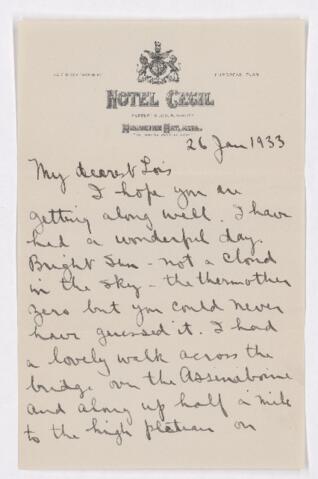 EUROPEAN PLAN
HOTEL CECIL
MEDICINE HAT, ALTA.
26 Jan 1933
My dearest Lois
I hope you are
getting along well. I have
had a wonderful day.
Bright Sun - not a cloud
in the sky - the thermother
zero but you could never
have guessed it. I had
a lovely walk across the
bridge over the Assiniboine
and along up half a mile
to the high plateau on